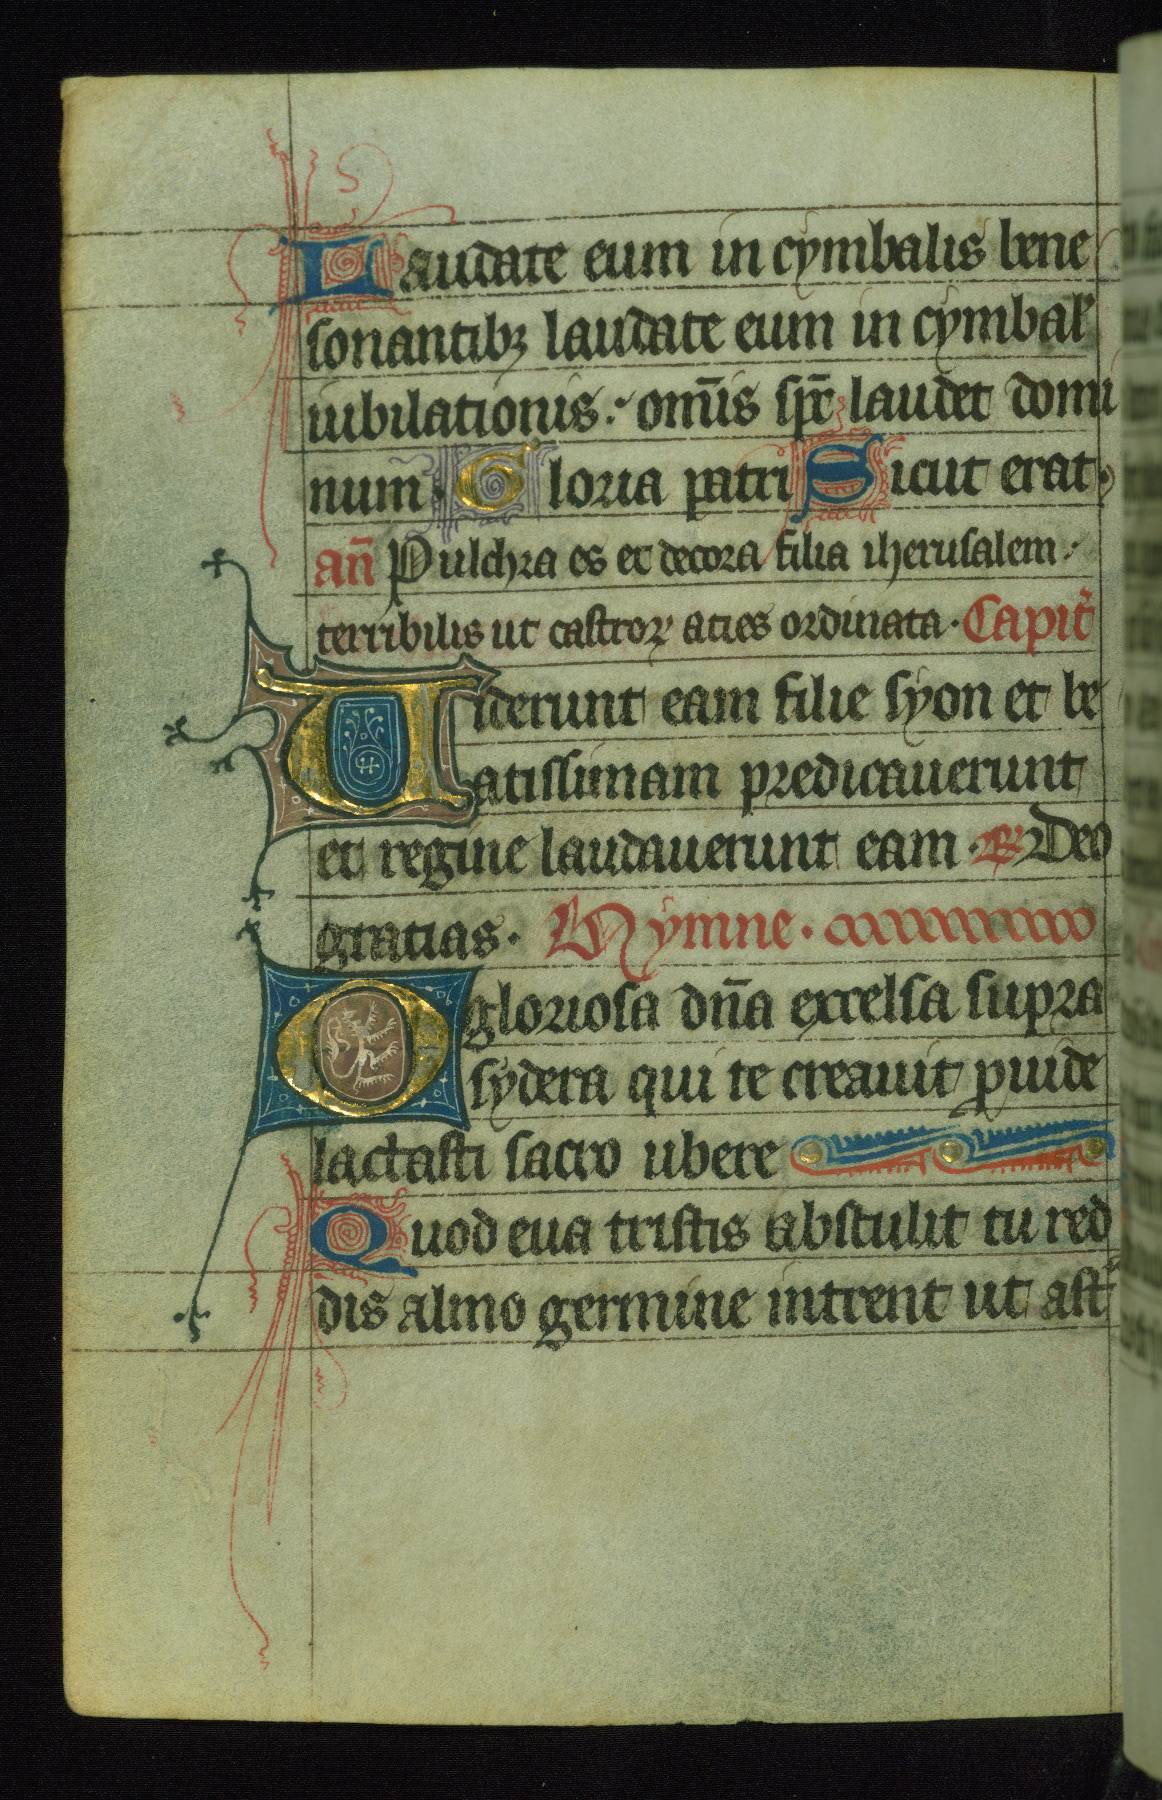 Laudate eum in cymbalis bene
sonantibꝫ laudate eum in cymbal'
iubilationis. om̄is sp̄r laudet domi
num. Gloria patri Sicut erat.
an̄ Pulchra es et decora filia iherusalem.
terribilis ut castroꝝ acies ordinata. Capit'
Uiderunt eam filie syon et be
atissimam predicauerunt
et regine laudauerunt eam. ℞ Deo
gratias. Hymne.
O gloriosa dn̄a excelsa supra
sydera qui te creauit ꝓuide
lactasti sacro ubere
Quod eua tristis abstulit tu red
dis almo germine intrent ut ast